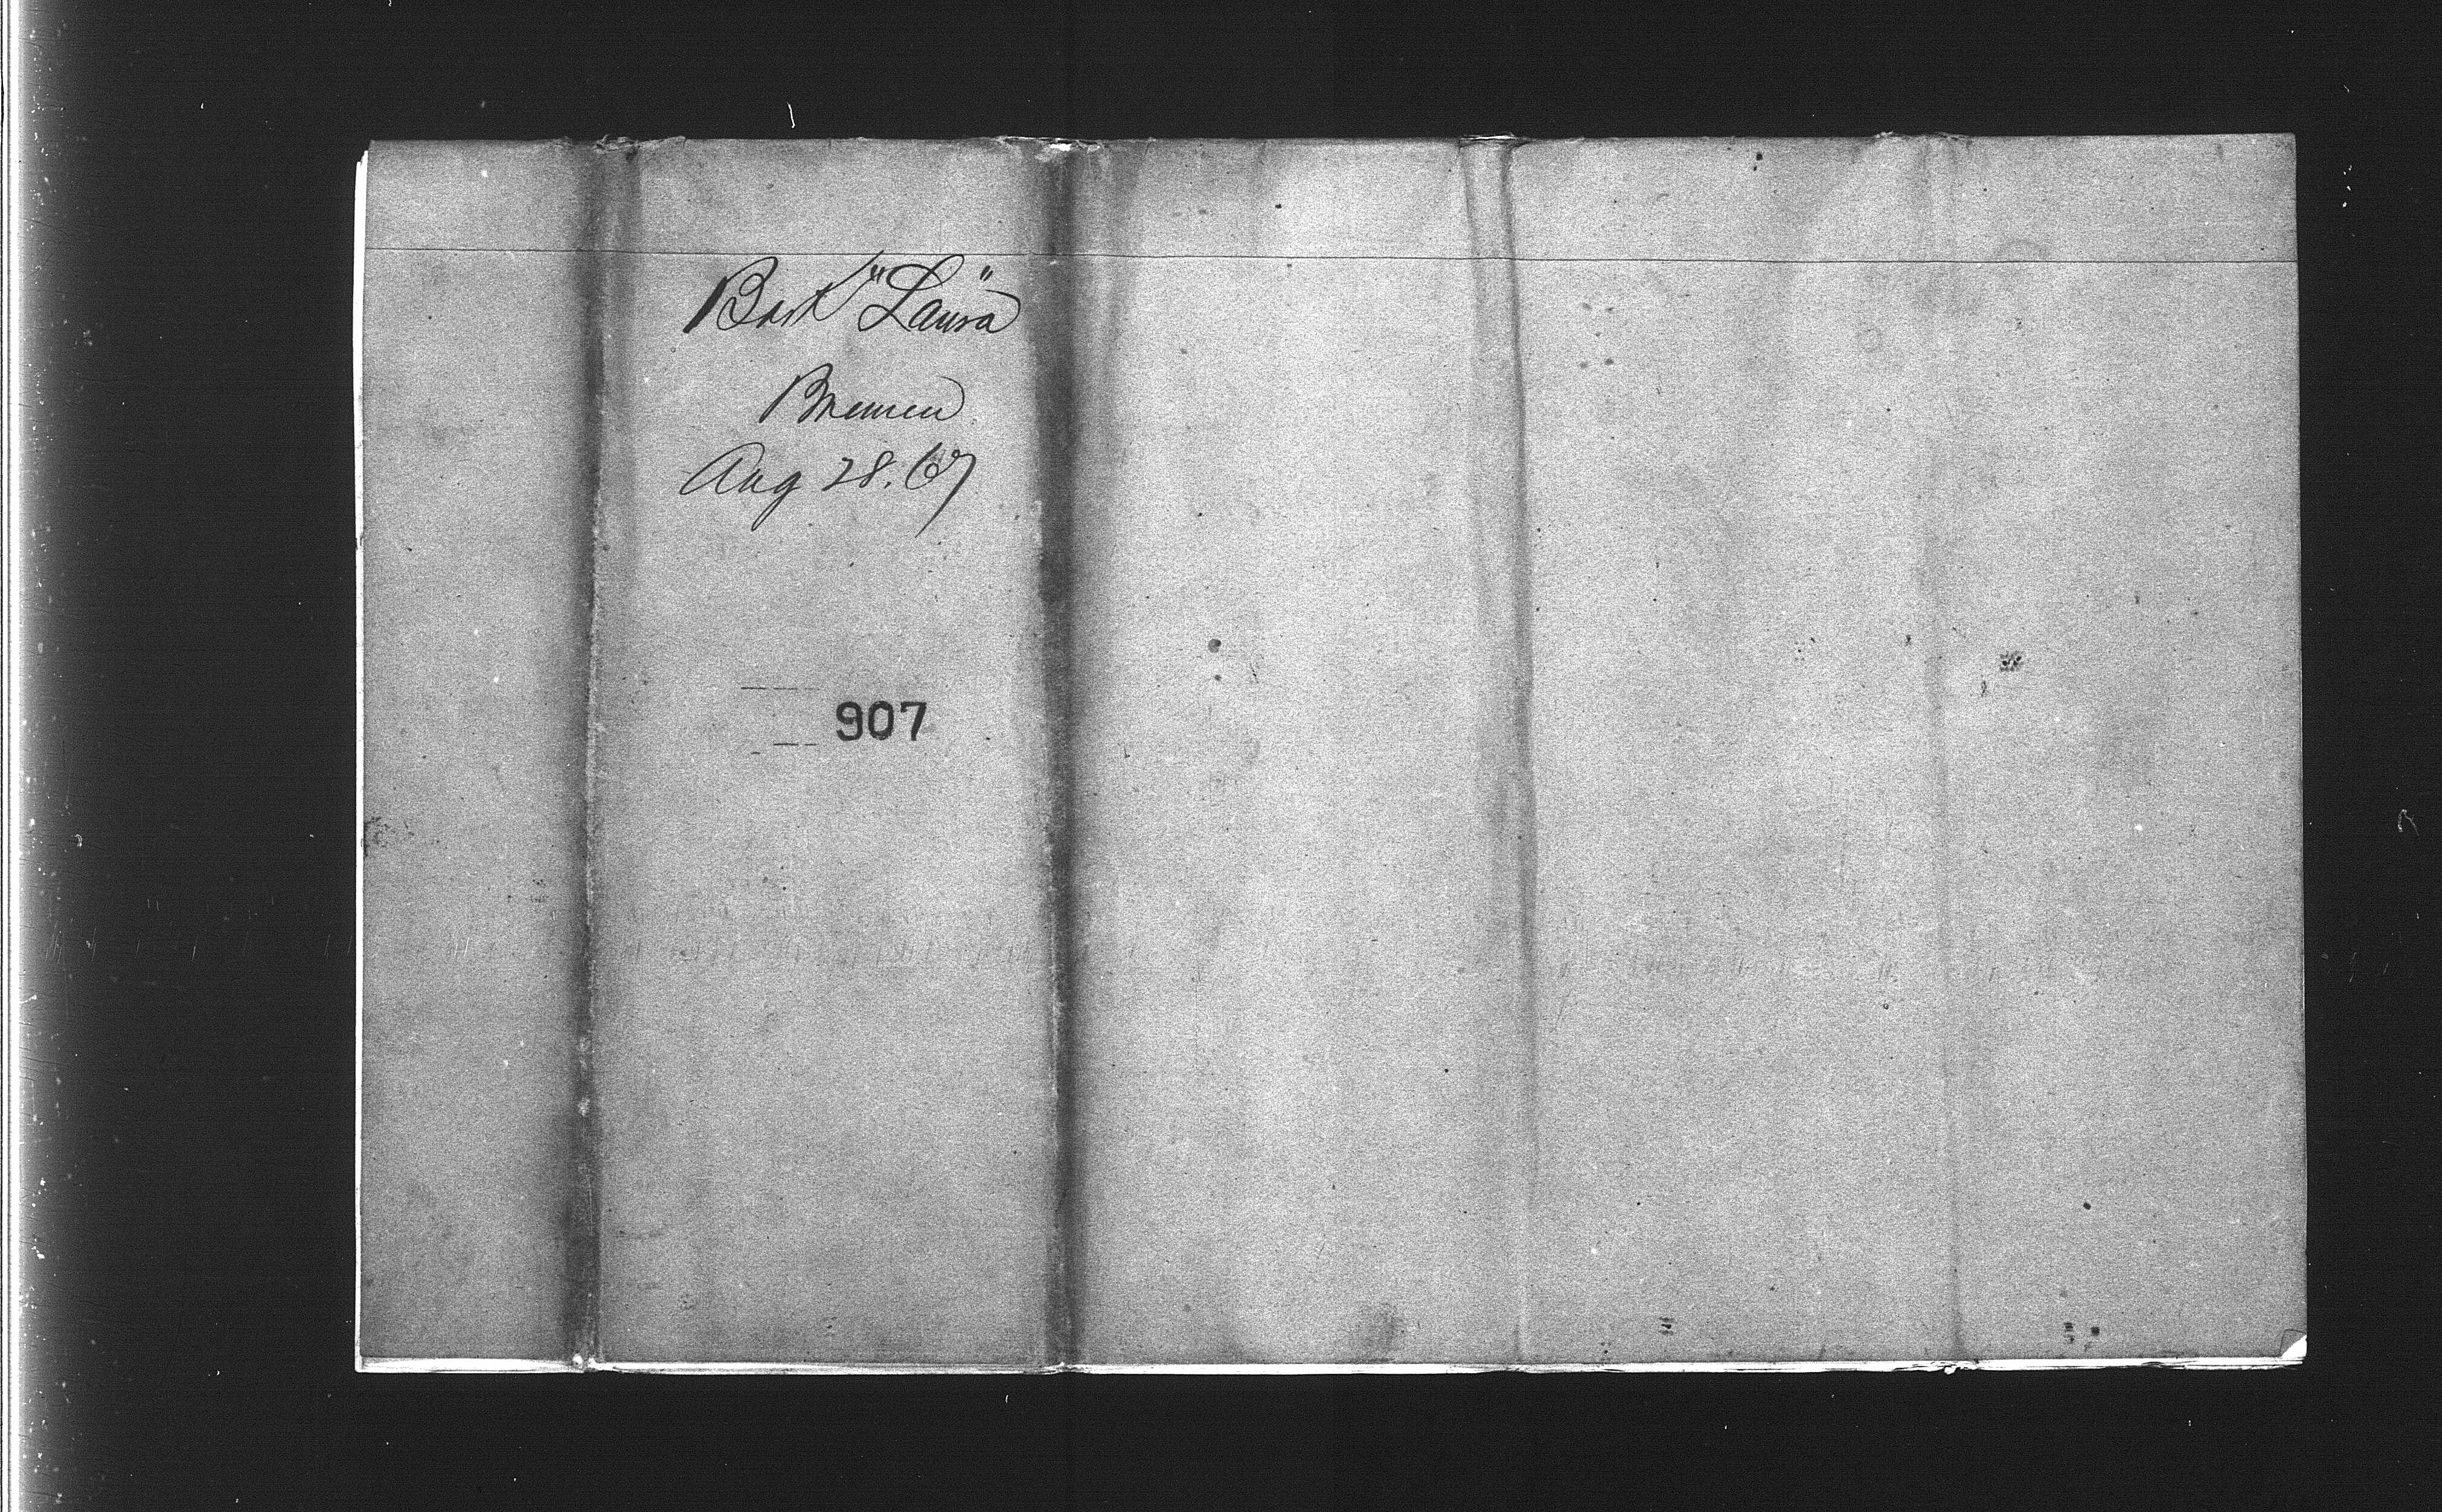 Bark "Laura"
Bremen
Aug 28. 67
907